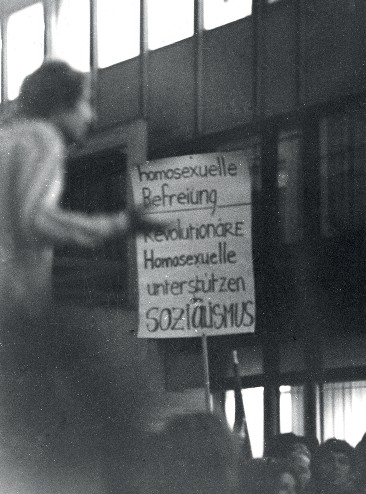 homosexuelle
Befreiung
REVOLUTIONÄRE
Homosexuelle
unterstützen
SOZIALISMUS